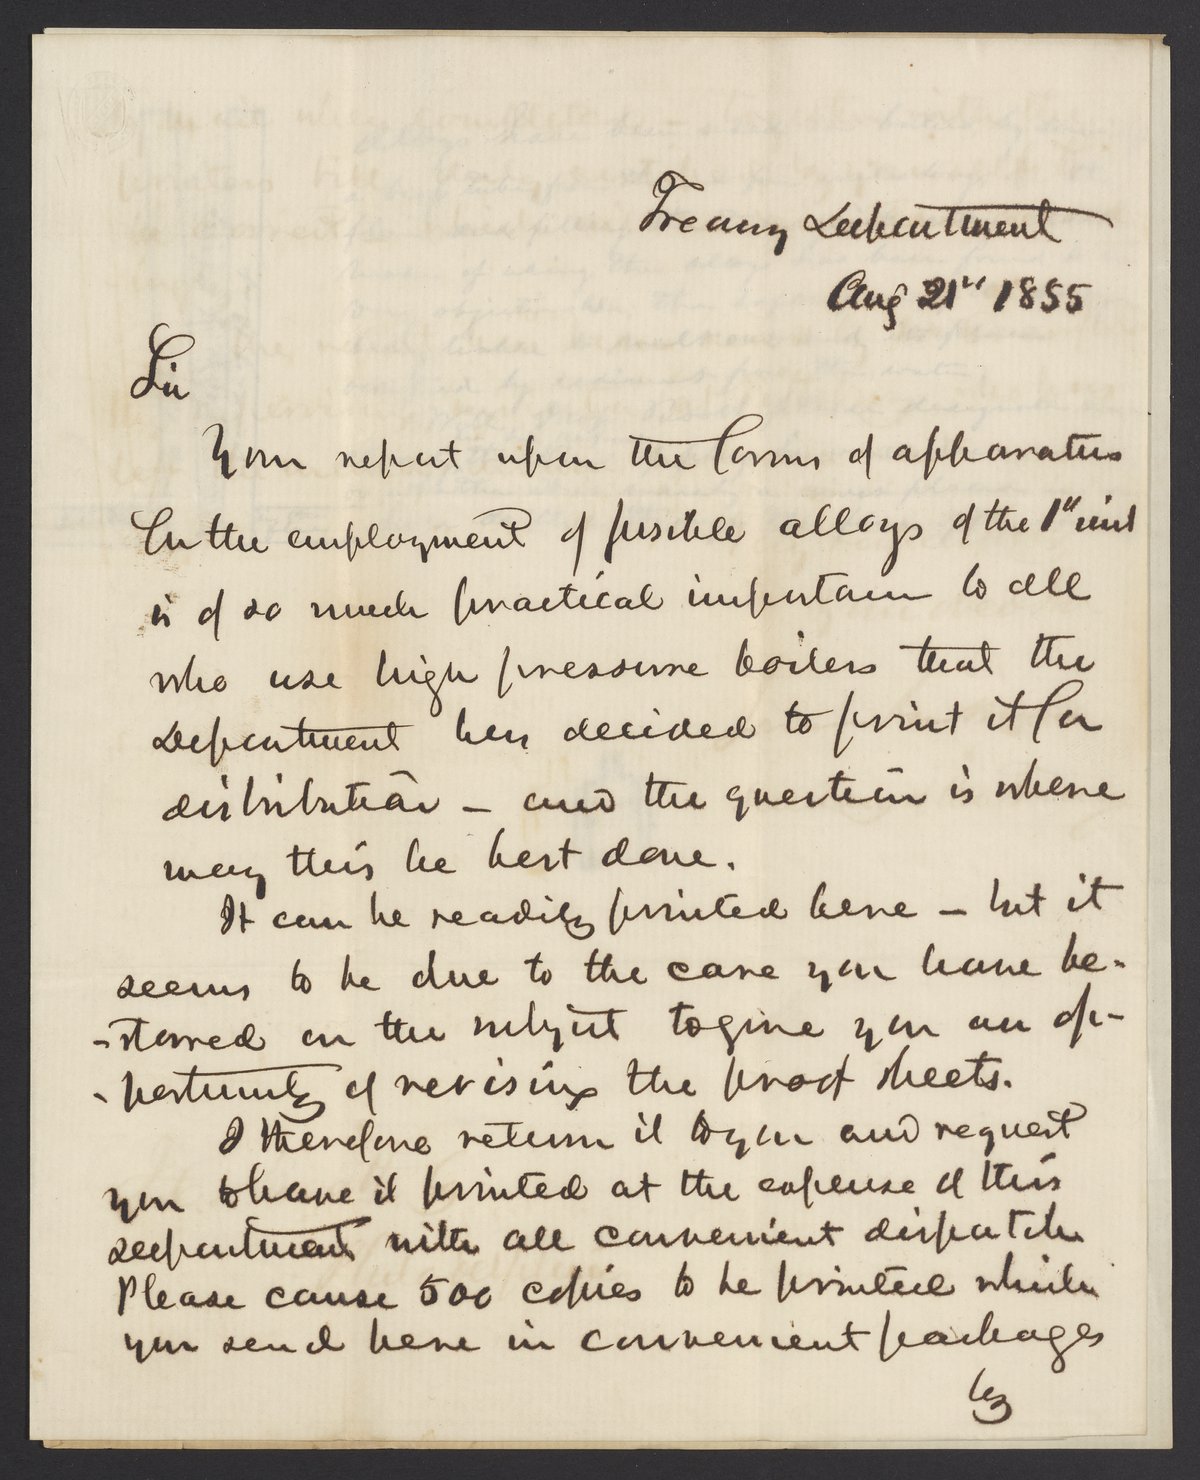 Treasury Department
Aug 21st 1855
Sir
Your report upon the forms of apparatus
for the employment of fusible alloys of the 1st inst
is of so much practical importance to all
who use high pressure boilers that the
Department has decided to print it for
distribution - and the question is where
may this be best done.
It can be readily printed here - but it
seems to be due to the care you have be-
-stowed on the subject to give you an op-
-portunity of revising the proof sheets.
I therefore return it to you and request
you to have it printed at the expense of this
department with all convenient dispatch
Please cause 500 copies to be printed which
you send here in convenient packages
by